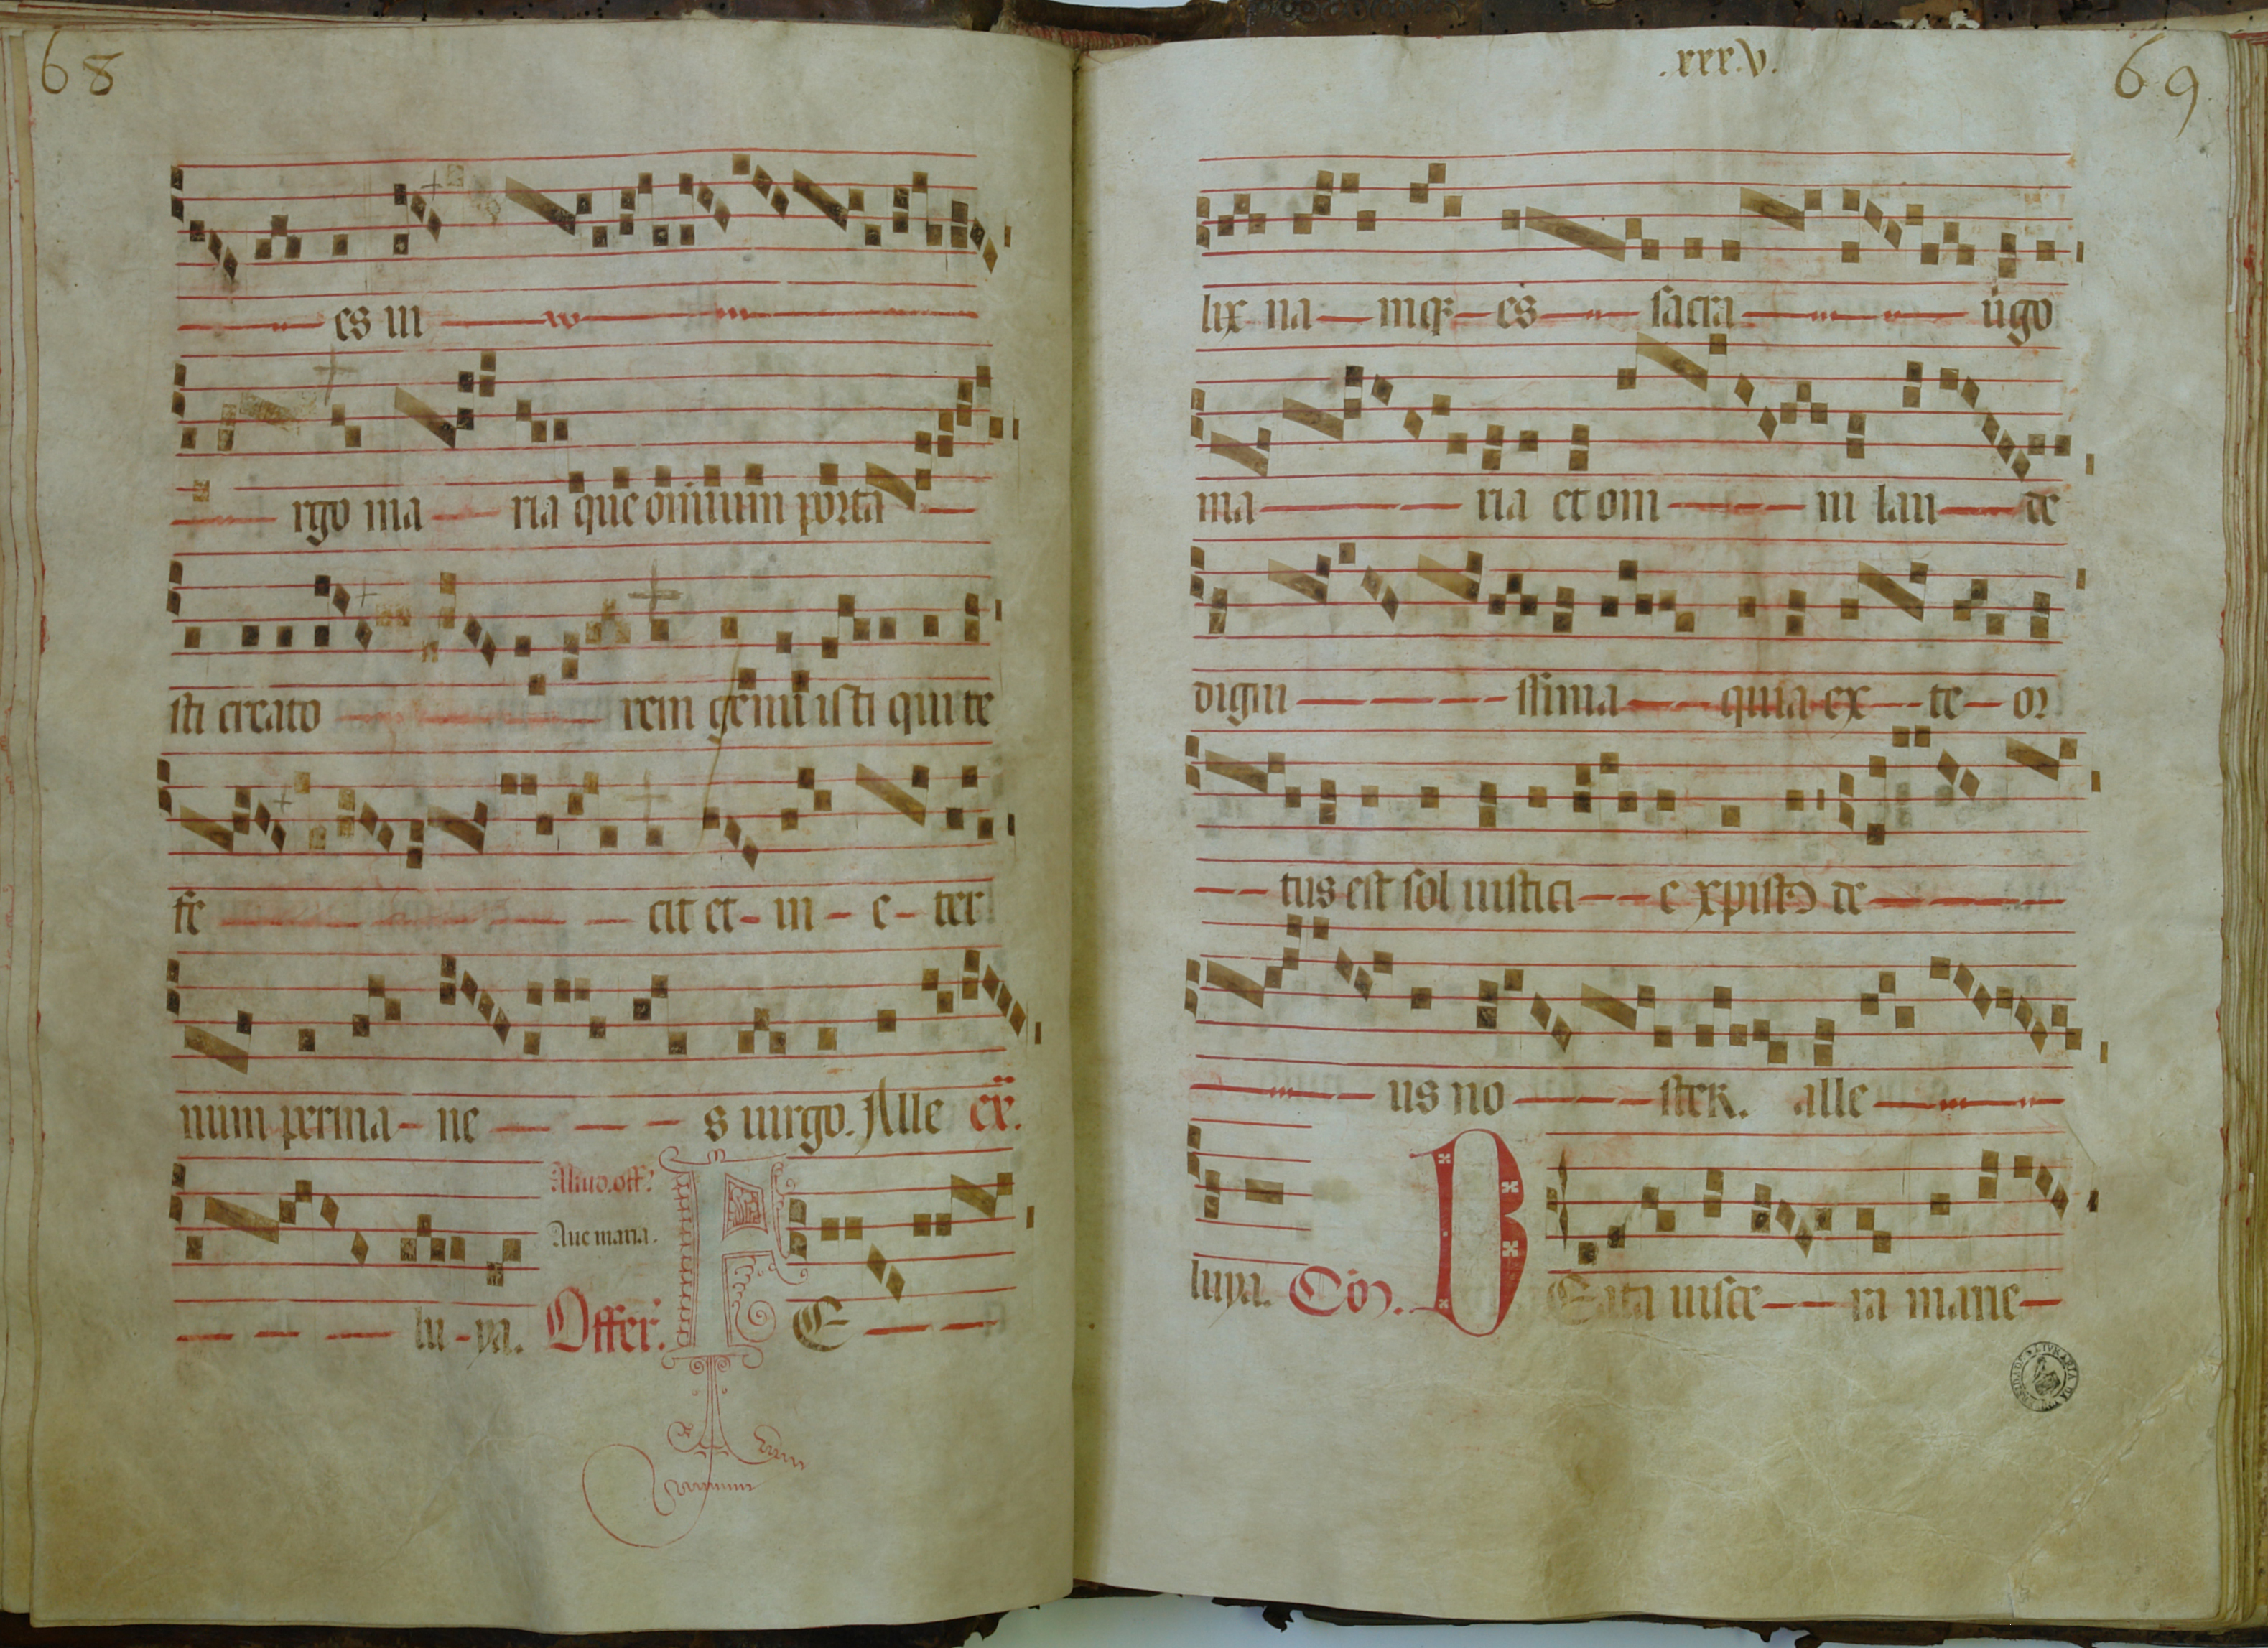 68
es vi
rgo ma ria que omnium porta
sti creato rem genuisti qui te
fe cit et in e ter
num perma ne s uirgo. Alle ex.
Aliud. off.
Aue maria.
lu ya. Offer. F E
.xxxv.
69
lix na mq; es sacra uigo
ma ria et om ni lau de
digni ssima quia ex te or
tus est sol iustici e xpistꝰ de
us no ster. alle
luya. Cōo. B Eata uisce ra marie